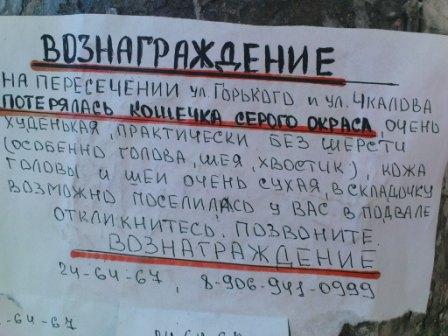 ВОЗНАГРАЖДЕНИЕ
НА ПЕРЕСЕЧЕНИИ УЛ. ГОРЬКОГО И УЛ. ЧКАЛОВА
ПОТЕРЯЛАСЬ КОШЕЧКА СЕРОГО ОКРАСА, ОЧЕНЬ
ХУДЕНЬКАЯ, ПРАКТИЧЕСКИ БЕЗ ШЕРСТИ
(ОСОБЕННО ГОЛОВА, ШЕЯ, ХВОСТИК), КОЖА
ГОЛОВЫ И ШЕИ ОЧЕНЬ СУХАЯ, В СКЛАДОЧКУ
ВОЗМОЖНО ПОСЕЛИЛАСЬ У ВАС В ПОДВАЛЕ
ОТКЛИКНИТЕСЬ. ПОЗВОНИТЕ.
ВОЗНАГРАЖДЕНИЕ
24-64-67, 8-906-941-0999
-64-67